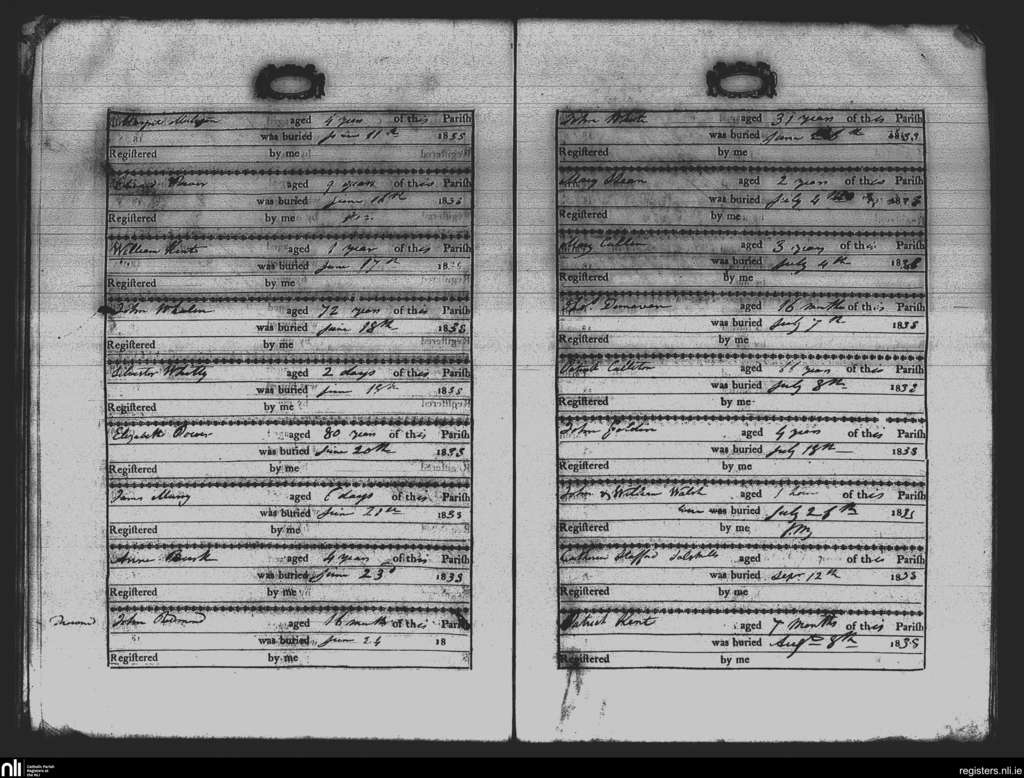 Mulligan aged 4 years of this Parish
was buried June 11th 1835
Registered by me
aged 9 years of this Parish
was buried June 16th 1835
Registered by me
William Kent aged 1 year of this Parish
was buried June 17th 18
Registered by me
John Whelan aged 72 years of this Parish
was buried June 18th 1835
Registered by me
Silvester Whitty aged 2 days of this Parish
was buried June 1835
Registered by me
Elizabeth Power aged 80 years of this Parish
was buried June 20th 1835
Registered by me
James aged 6 days of this Parish
was buried June 1835
Registered by me
Anne Burk aged 4 years of this Parish
was buried June 23d 1835
Registered by me
John Redmond aged 16 months of this Parish
was buried June 24 18
Registered by me
John White aged 31 years of this Parish
was buried June 1835
Registered by me
Mary aged 2 years of this Parish
was buried July 4th
Registered by me
Mary Cullen aged 3 years of this
was buried July 4th
Registered by me
Donavan aged 16 months of this Parish
was buried July 7th 1835
Registered by me
Patrick aged years of this Parish
was buried July 8th 1835
Registered by me
John aged 4 years of this Parish
was buried July 18th 1835
Registered by me
John & William Walsh aged 1 hour of this Parish
were was buried July 26th 1835
Registered by me
Stafford aged of this Parish
was buried Sepr 12th 1835
Registered by me
Patrick Kent aged 7 months of this Parish
was buried Augt 8th 1835
Registered by me
nli Catholic Parish Registers at the NLI
registers.nli.ie